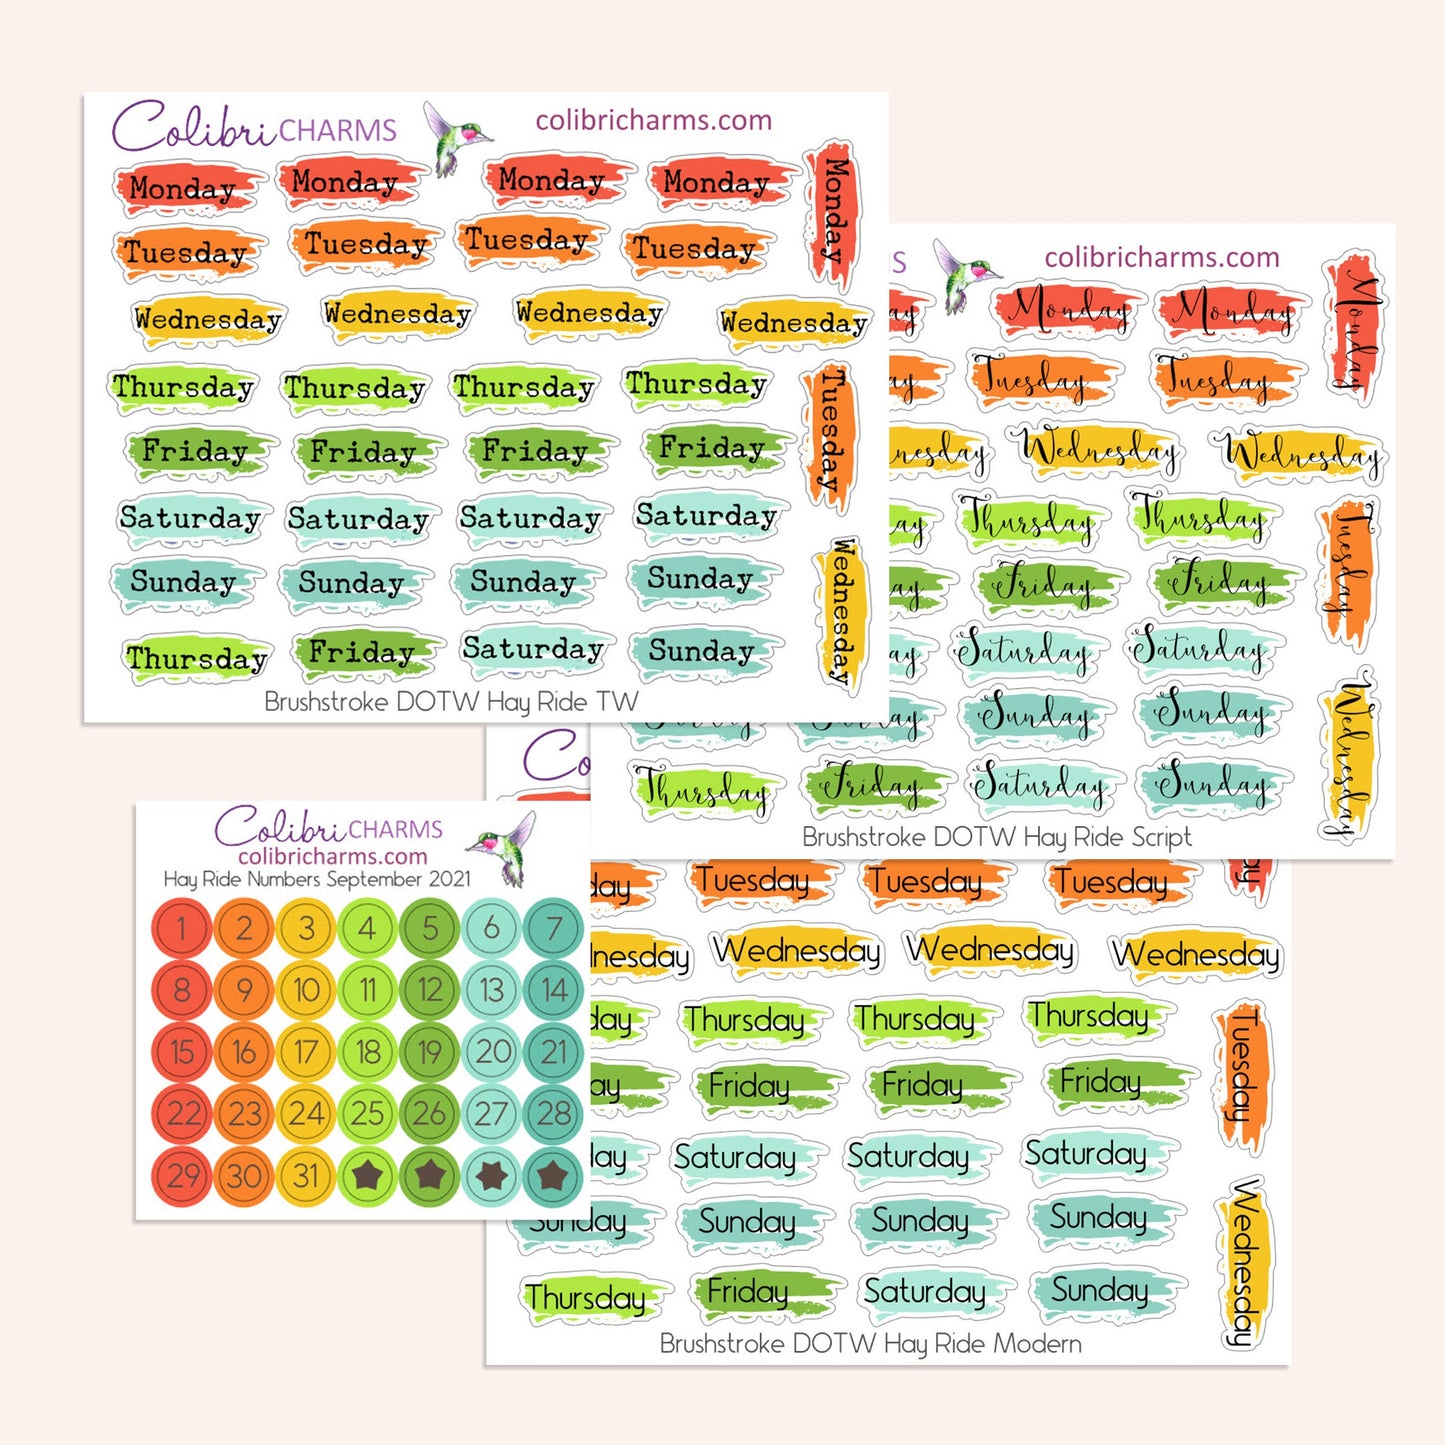 Colibri CHARMS
colibricharms.com
Monday Monday Monday Monday Monday
Tuesday Tuesday Tuesday Tuesday
Wednesday Wednesday Wednesday Wednesday
Thursday Thursday Thursday Thursday Tuesday
Friday Friday Friday Friday
Saturday Saturday Saturday Saturday
Sunday Sunday Sunday Sunday Wednesday
Thursday Friday Saturday Sunday
Brushstroke DOTW Hay Ride TW
S
colibricharms.com
ay Monday Monday Monday
ay Tuesday Tuesday
nesday Wednesday Wednesday
day Thursday Thursday Tuesday
ay Friday Friday
ay Saturday Saturday
Sunday Sunday Wednesday
Thursday Friday Saturday Sunday
Brushstroke DOTW Hay Ride Script
Co
Colibri CHARMS
colibricharms.com
Hay Ride Numbers September 2021
1 2 3 4 5 6 7
8 9 10 11 12 13 14
15 16 17 18 19 20 21
22 23 24 25 26 27 28
29 30 31
day Tuesday Tuesday Tuesday ay
nesday Wednesday Wednesday Wednesday
day Thursday Thursday Thursday Tuesday
ay Friday Friday Friday
day Saturday Saturday Saturday
Sunday Sunday Sunday Sunday Wednesday
Thursday Friday Saturday Sunday
Brushstroke DOTW Hay Ride Modern